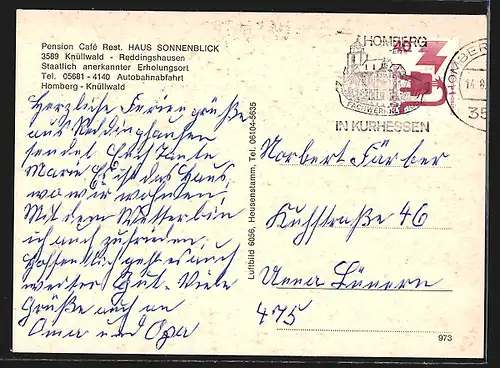 Pension Café Rest. HAUS SONNENBLICK
3589 Knüllwald - Reddingshausen
Staatlich anerkannter Erholungsort
Tel. 05681 - 4140 Autobahnabfahrt
Homberg - Knüllwald
Herzliche Feriengrüße
aus Reddinghausen
sendet Euch Tante
Marie. Es ist das Haus,
wo wir wohnen.
Mit dem Wetter bin
ich auch zufrieden.
Hoffentlich geht es auch
weiter gut. Viele
Grüße auch an
Oma und Opa
Luftbild 6056, Heusenstamm, Tel. 06104-5635
HOMBERG
IN KURHESSEN
40
HOMBERG
14.8.
35
Norbert Färber
Kuhstraße 46
Unna Lünern
475
973